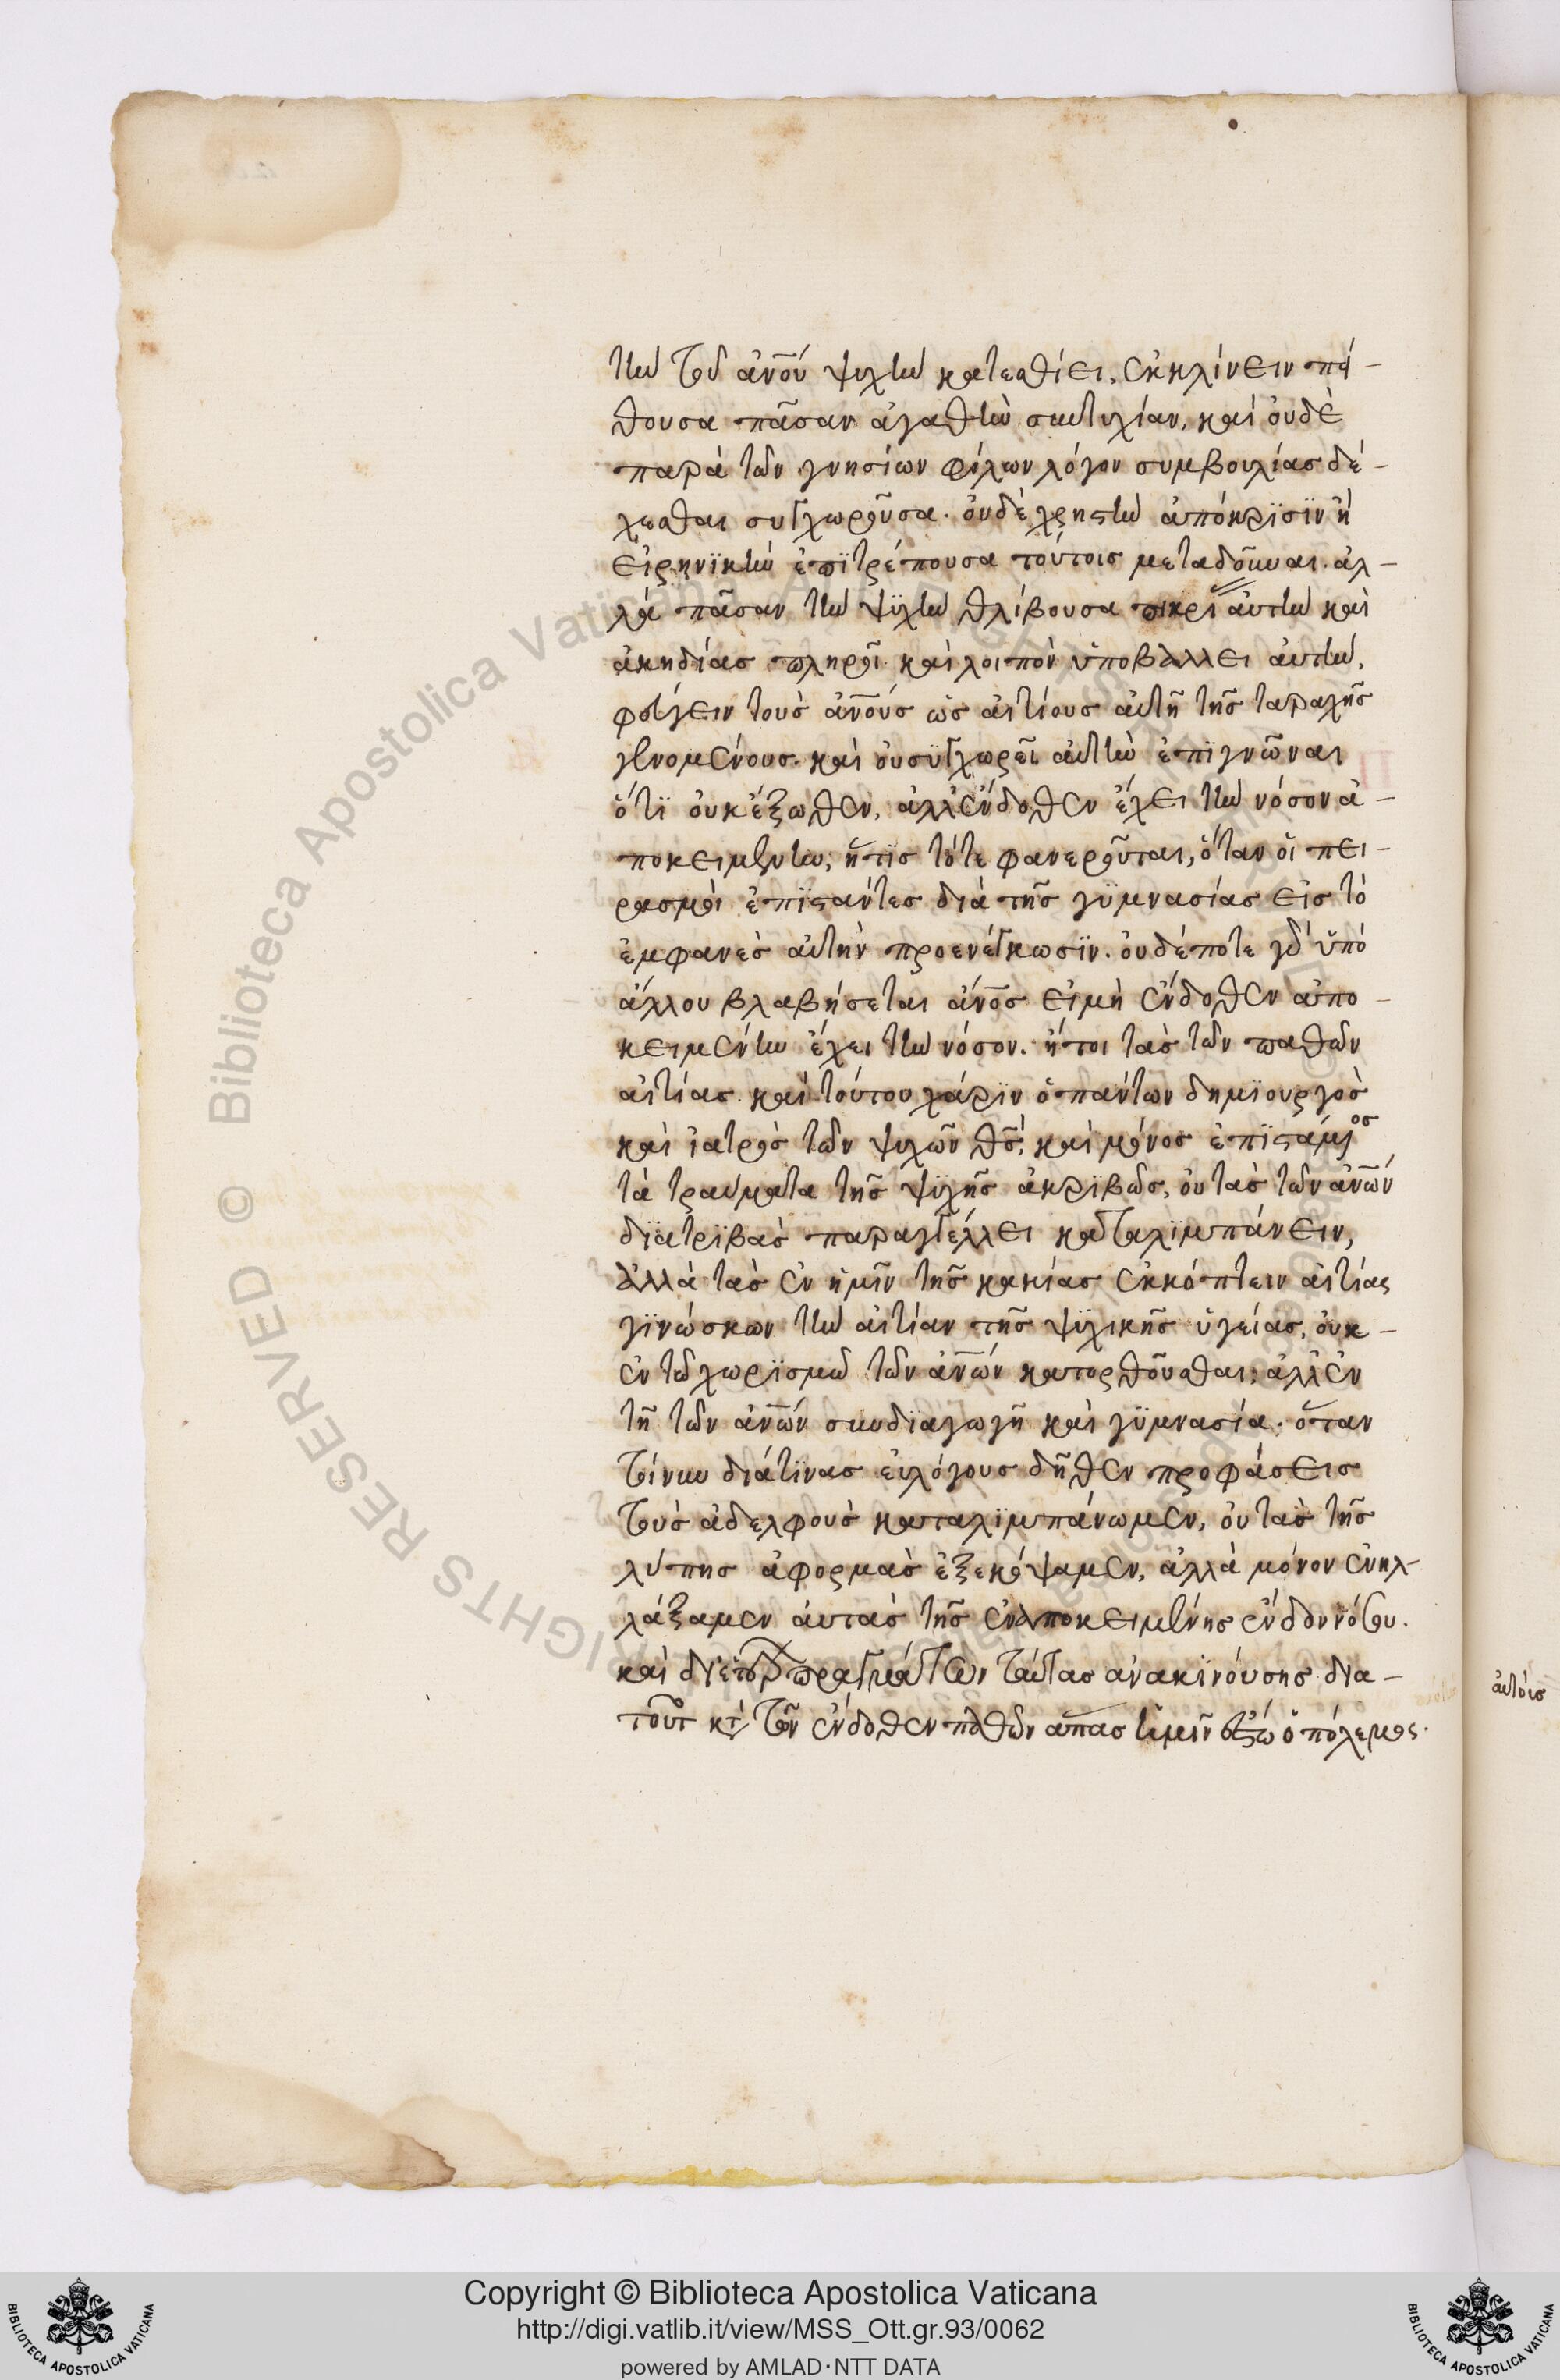 τὴν τοῦ ἀν̅ου ψυχὴν κατεσθίει, ἐκκλίνειν πεί-
θουσα πᾶσαν ἀγαθὴν συντυχίαν, καὶ οὐδὲ
παρὰ τῶν γνησίων φίλων λόγον συμβουλίας δέ-
χεσθαι συγχωροῦσα. οὐδὲ χρηστὴν ἀπόκρϊσϊν ἢ
εἰρηνϊκὴν ἐπϊτρέπουσα τούτοις μεταδοῦναι. ἀλ-
λὰ πᾶσαν τὴν ψϋχὴν θλίβουσα πικρὶ αὐτὴν καὶ
ἀκηδίας πληροῖ. καὶ λοιπὸν ὑποβάλλει αὐτὴν,
φεύγειν τοὺς ἀν̅ους ὡς αἰτίους αὐτῆ τῆς ταραχῆς
γενομένους. καὶ οὐ συγχωρεῖ αὐτὴν ἐπϊγνῶναι
ὅτϊ οὐκ ἔξωθεν, ἀλλ' ἔνδοθεν ἔχει τὴν νόσον ἀ-
ποκειμένην, ἥτϊς τότε φανεροῦται, ὅταν οἱ πει-
ρασμοὶ ἐπϊστάντες διὰ τῆς γϋμνασίας εἰς τὸ
ἐμφανὲς αὐτὴν προενέγκωσϊν. οὐδέποτε γὰρ ὑπὸ
ἄλλου βλαβήσεται ἄν̅ος εἰ μὴ ἔνδοθεν ἀπο-
κειμένην ἔχει τὴν νόσον. ἤτοι τὰς τῶν παθῶν
αἰτίας. καὶ τούτου χάρϊν ὁ πάντων δημϊουργὸς
καὶ ἰατρὸς τῶν ψυχῶν θ̅ς, καὶ μόνος ἐπϊστάμενος
τὰ τραύματα τῆς ψϋχῆς ἀκρϊβῶς, οὐ τὰς τῶν ἀν̅ων
δϊατρϊβὰς παραγγέλλει καταλϊμπάνειν,
ἀλλὰ τὰς ἐν ἡμῖν τῆς κακίας ἐκκόπτειν αἰτίας
γϊνώσκων τὴν αἰτίαν τῆς ψϋχικῆς ὑγείας, οὐκ-
ἐν τῶ χωρϊσμῶ τῶν ἀν̅ων κατορθοῦσθαι, ἀλλ' ἐν
τῆ τῶν ἀν̅ων συνδϊαγωγῆ καὶ γϋμνασία. ὅταν
τοίνυν διά τϊνας εὐλόγους δῆθεν προφάσεις
τοὺς ἀδελφοὺς καταλϊμπάνωμεν, οὐ τὰς τῆς
λύπης ἀφορμὰς ἐξεκόψαμεν, ἀλλὰ μόνον ἐνηλ-
λάξαμεν αὐτὰς τῆς ἐναποκειμένης ἔνδον νόσου.
καὶ δι' ἑτέρων πραγμάτων ταύτας ἀνακϊνούσης. δια-
τοῦτο κατὰ τῶν ἔνδοθεν παθῶν ἅπας ἡμῖν ἔστω ὁ πόλεμος.
αὐτόις
Copyright © Biblioteca Apostolica Vaticana
http://digi.vatlib.it/view/MSS_Ott.gr.93/0062
powered by AMLAD·NTT DATA